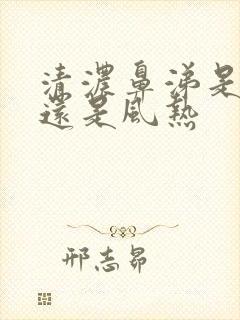 清濃鼻涕是
還是風熱
邢志昂